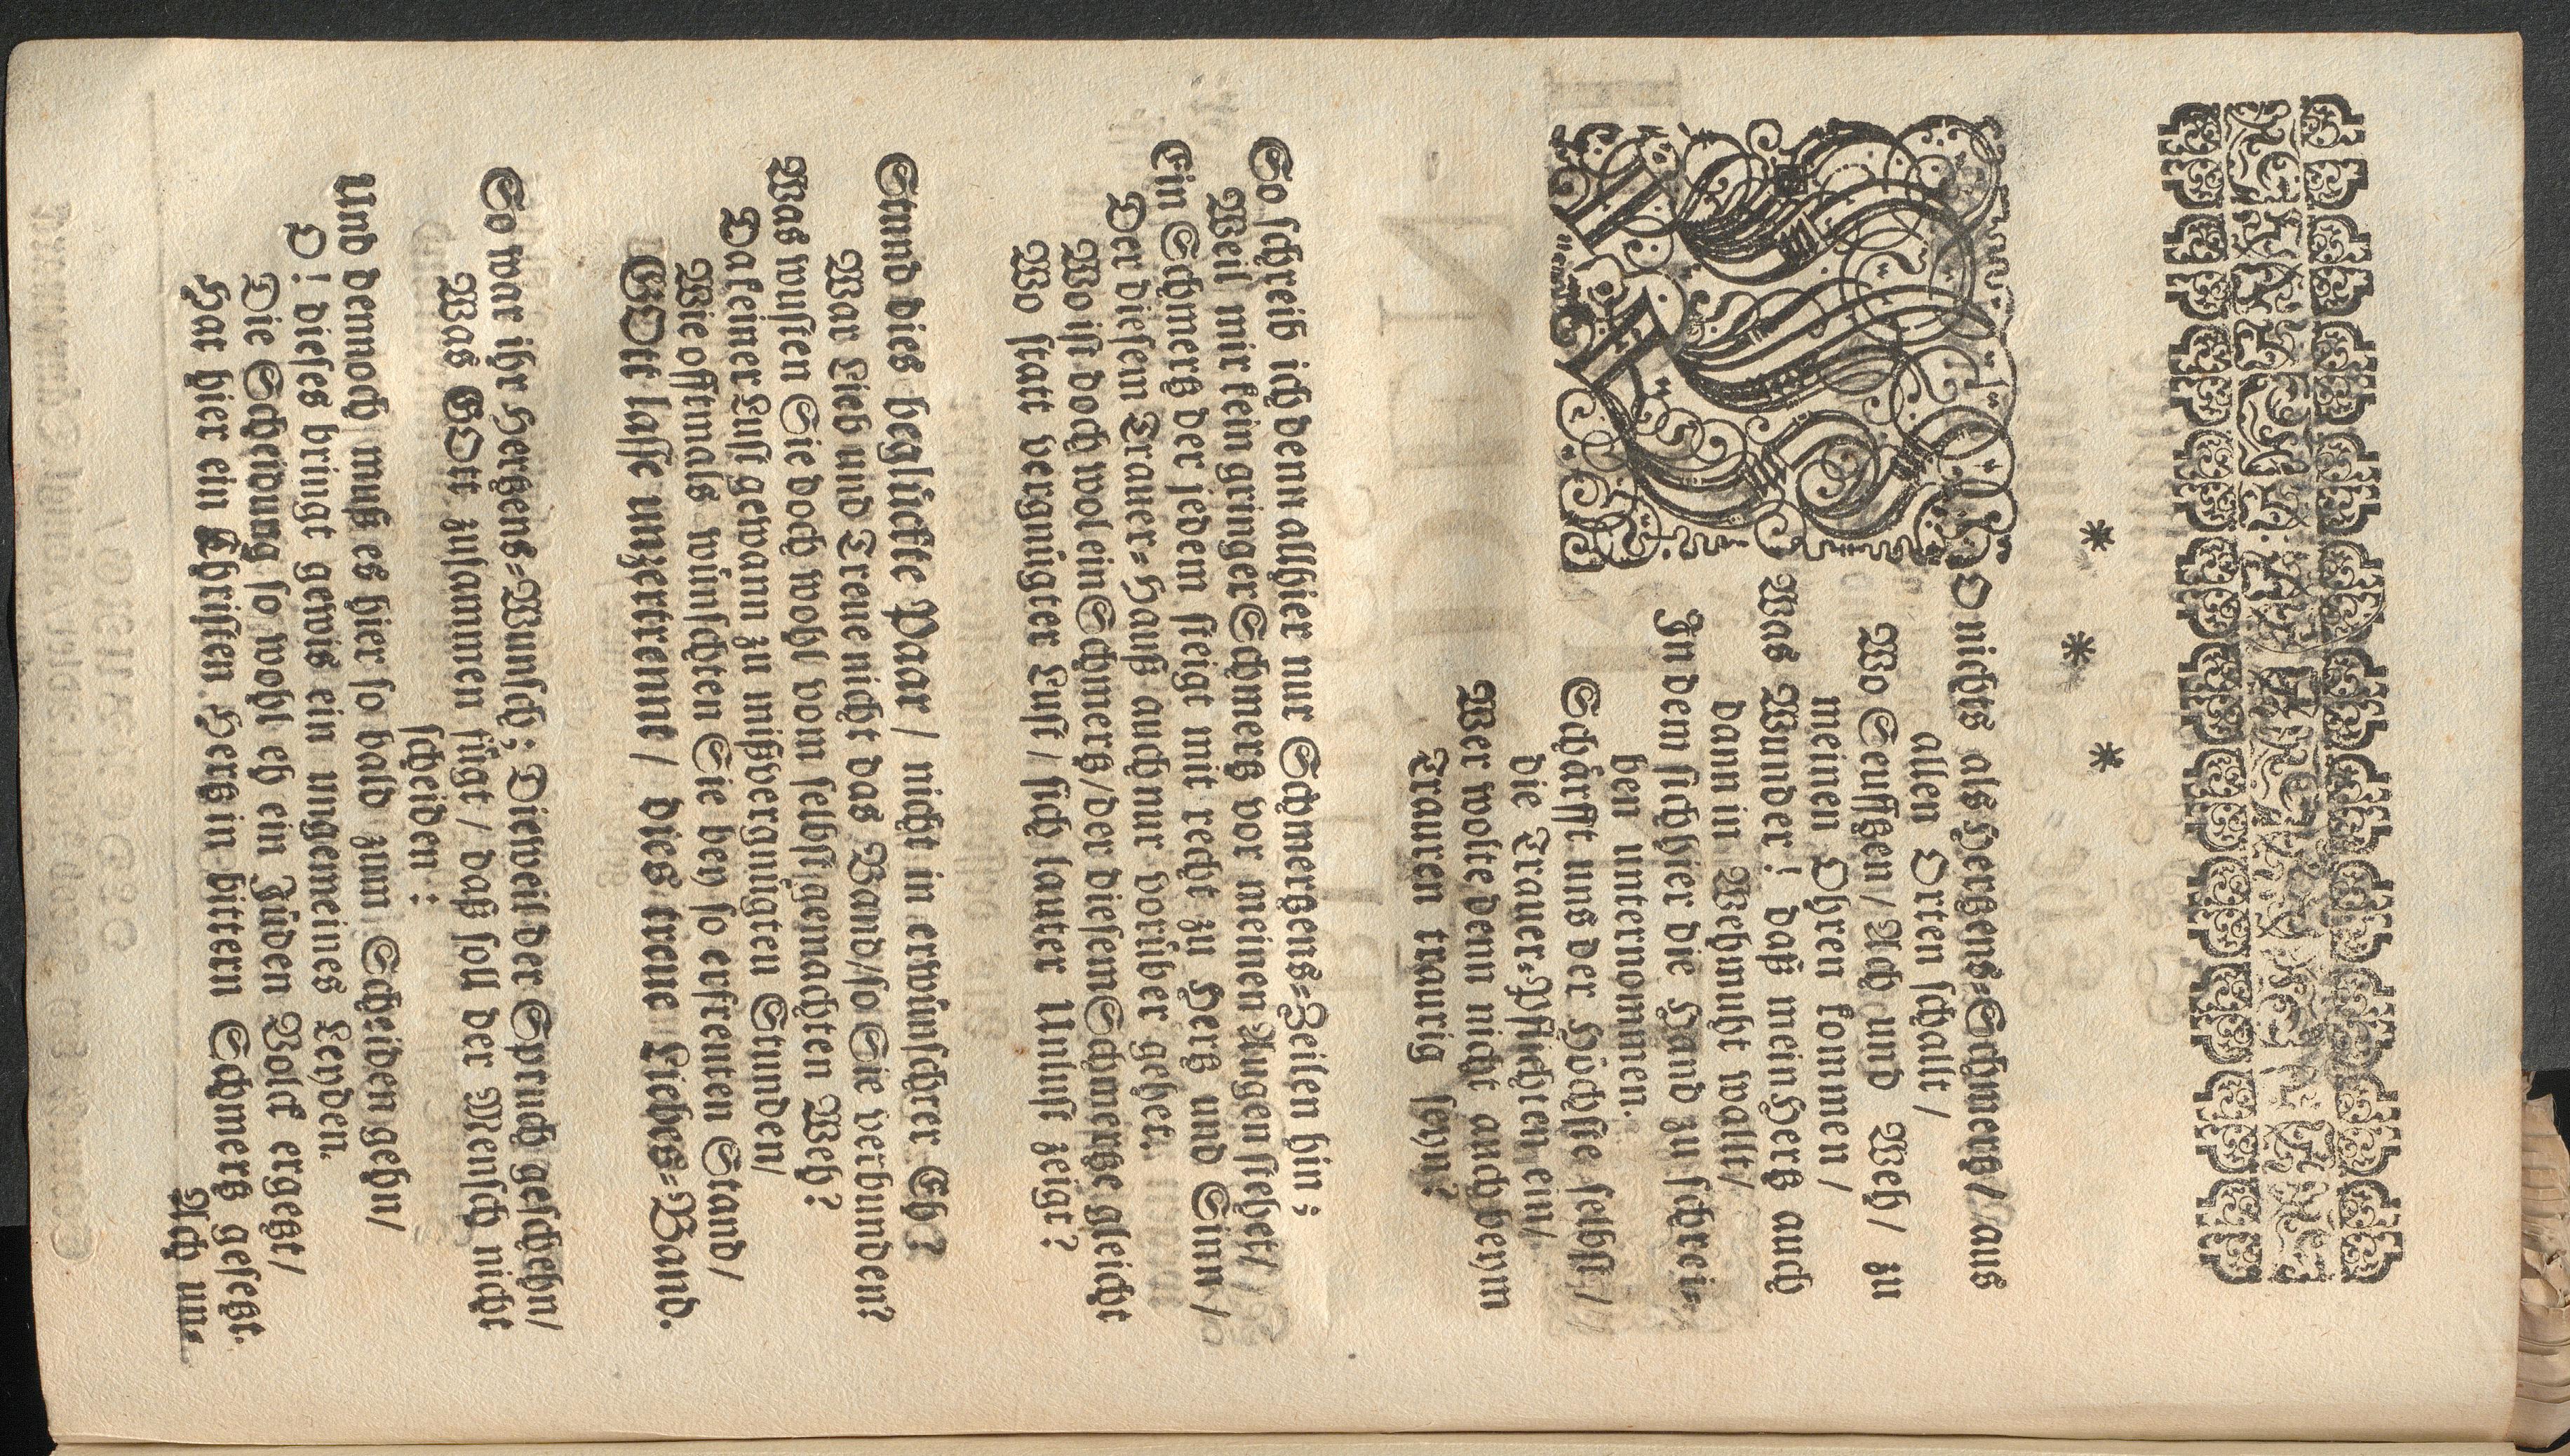 * * *
WO nichts als Hertzens-Schmertz / aus
allen Orten schallt /
Wo Seufftzen / Ach und Weh / zu
meinen Ohren kommen /
Was Wunder! daß mein Hertz auch
dann in Wehmuht wallt/
In dem sich hier die Hand zu schrei-
ben unternommen.
Schärfft uns der Höchste selbst /
die Trauer-Pflichten ein/
Wer wolte denn nicht auch beym
Trauren traurig seyn?
So schreib ich denn allhier nur Schmertzens-Zeilen hin;
Weil mir kein gringer Schmertz vor meinen Augen stehet /
Ein Schmertz der jedem steigt mit recht zu Hertz und Sinn /
Der diesem Trauer-Hauß auch nur vorüber gehet.
Wo ist doch wol ein Schmertz/der diesem Schmertze gleicht
Wo statt vergnügter Lust / sich lauter Unlust zeigt?
Stund dies beglückte Paar / nicht in erwünschter Eh?
War Lieb und Treue nicht das Band/so Sie verbunden?
Was wusten Sie doch wohl vom selbst gemachten Weh?
Da keiner Lust gewann zu mißvergnügten Stunden/
Wie offtmals wünschten Sie bey so erfreuten Stand/
GOtt lasse unzertrennt / dies treue Liebes-Band.
So war ihr Hertzens-Wunsch; Dieweil der Spruch geschehn/
Was GOtt zusammen fügt / daß soll der Mensch nicht
scheiden:
Und dennoch muß es hier so bald zum Scheiden gehn/
O! dieses bringt gewis ein ungemeines Leyden.
Die Scheidung so wohl eh ein Jüden Volck ergetzt/
Hat hier ein Christen Hertz in bittern Schmertz gesetzt.
Ach un-